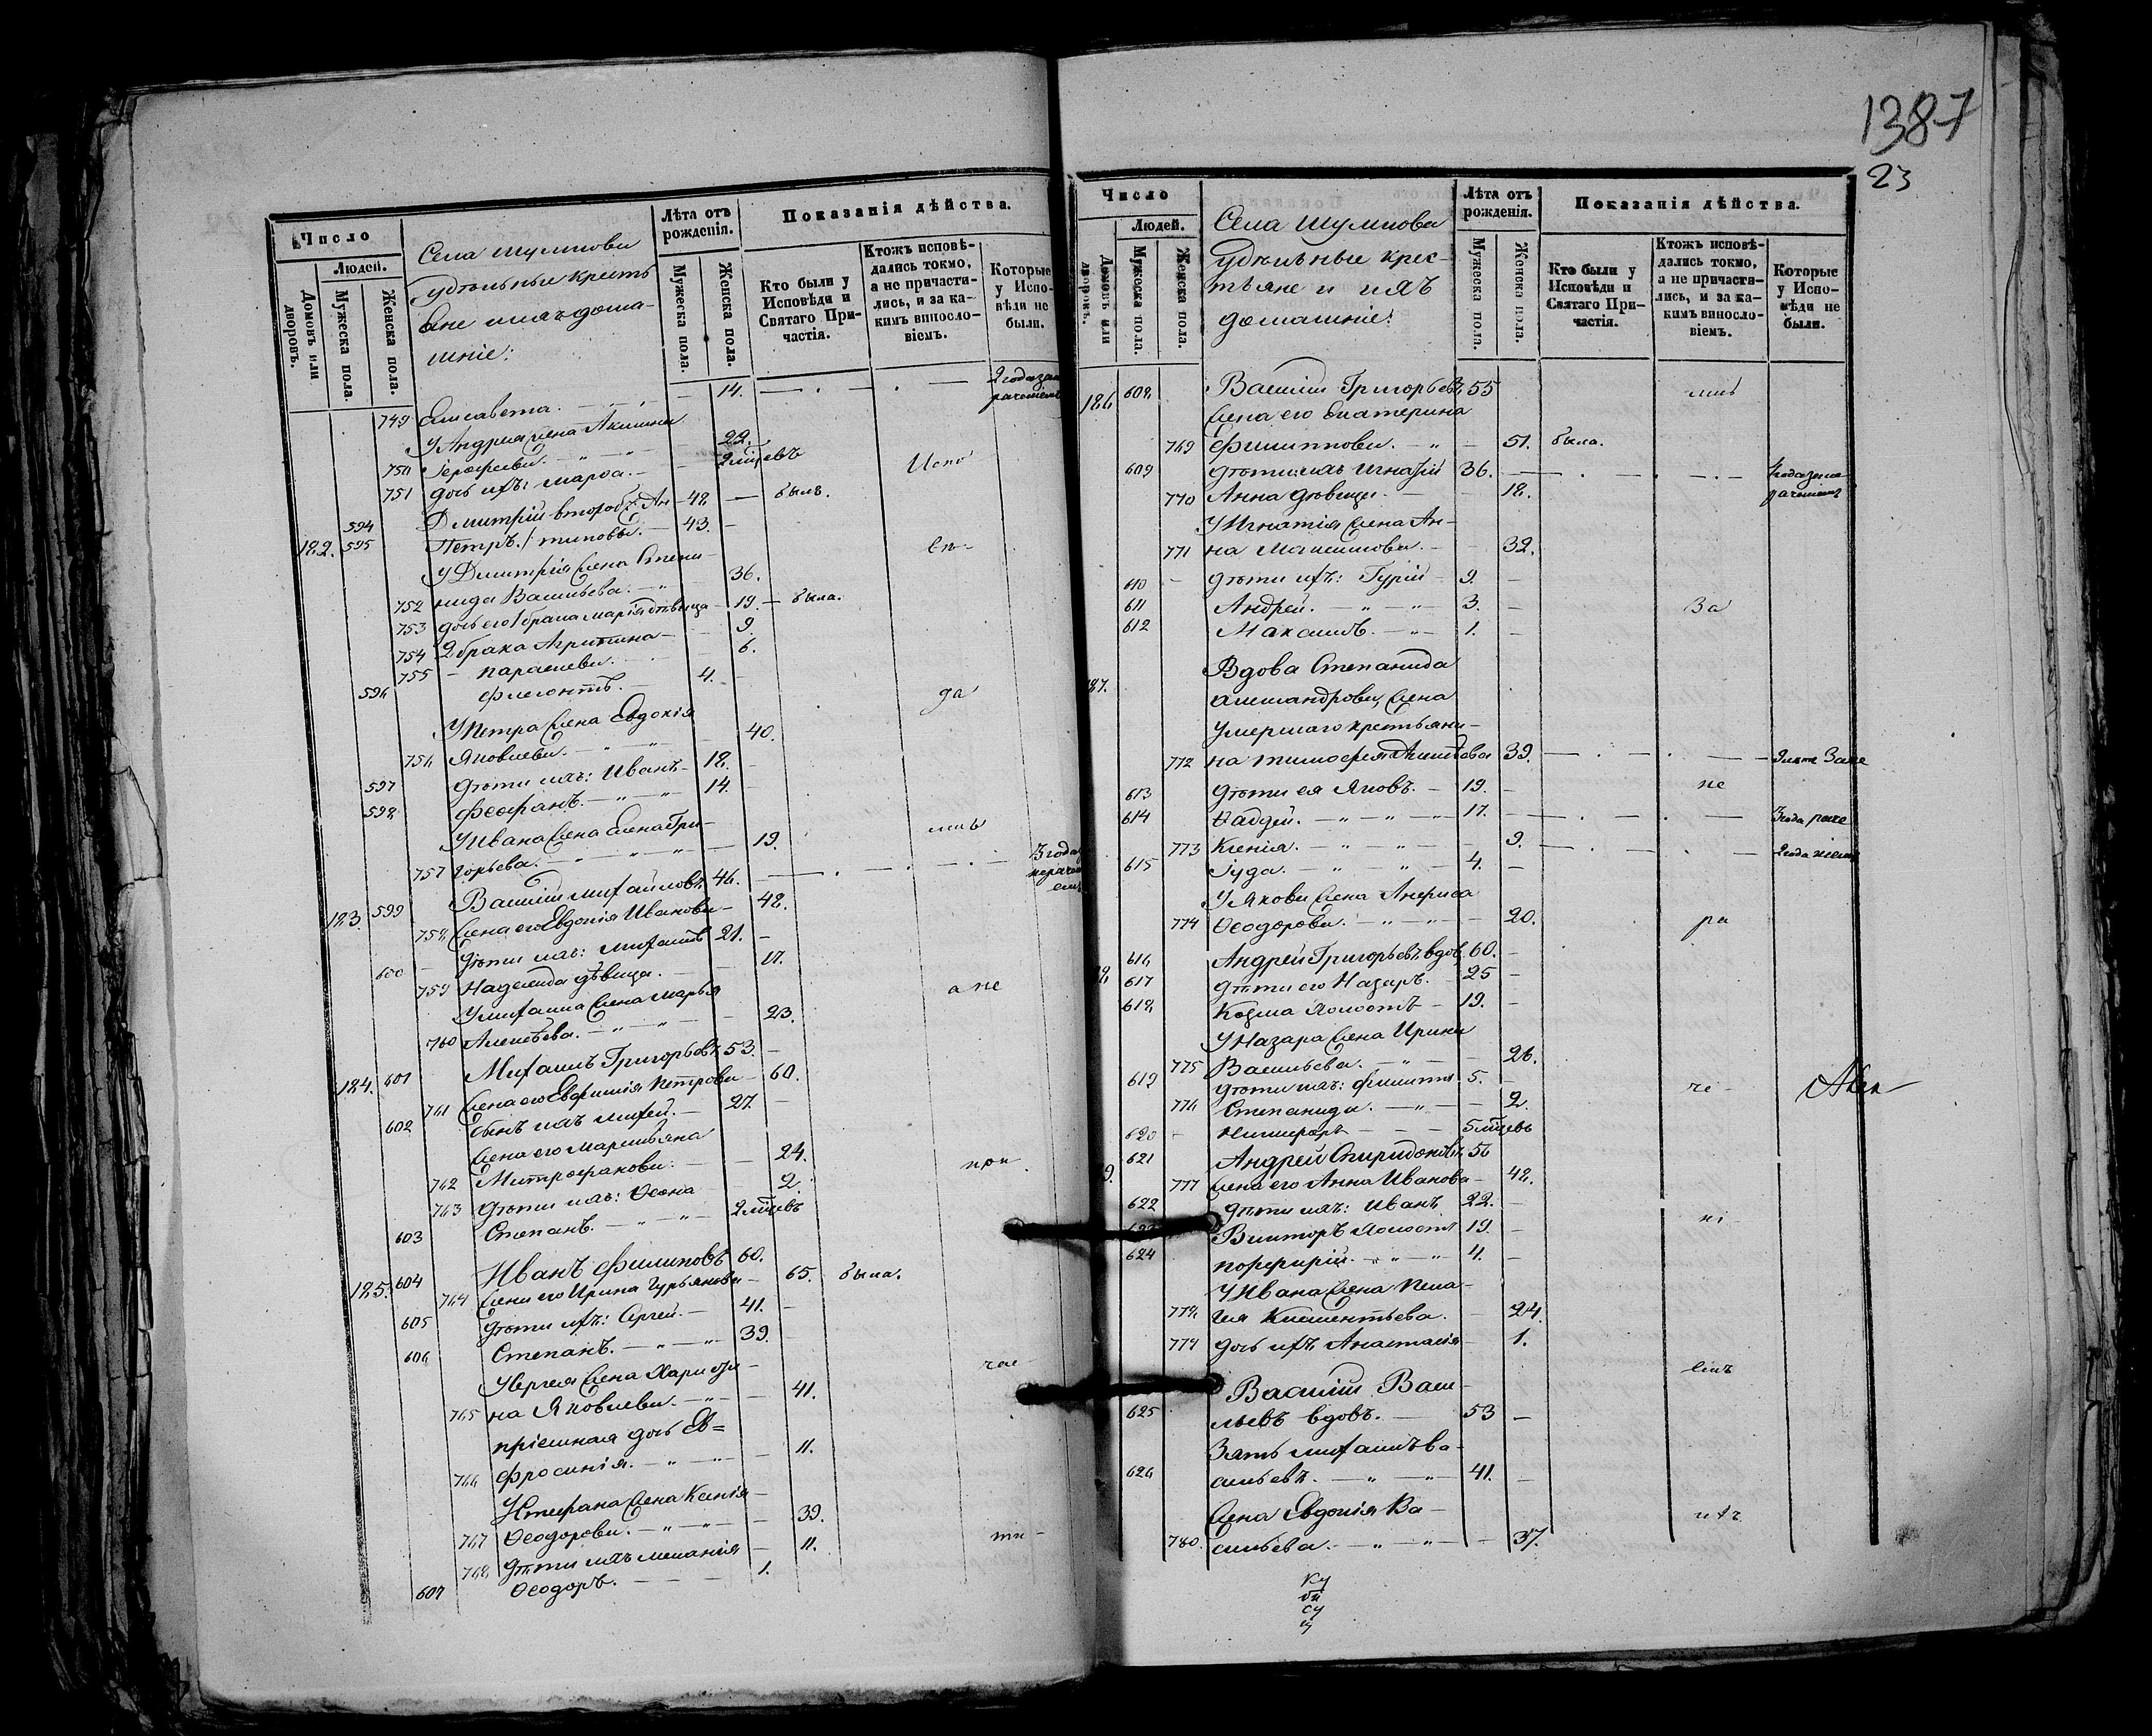 Число
Людей.
Домовъ или дворовъ.
Мужеска пола.
Женска пола.
Села Шумпова
удѣльные кресть
яне и ихъ дома-
шніе:
Лѣта отъ рожденія.
Мужеска пола.
Женска пола.
Показанія дѣйства.
Кто были у Исповѣди и Святаго При-частія.
Ктожъ исповѣ-дались токмо, а не причасти-лись, и за ка-кимъ винослo-віемъ.
Которые у Испо-вѣди не были.
749 Елисавета. 14. 2 года за не
раченіемъ
У Андрея жена Акилина
750 Іерофеева. 22.
751 дочь ихъ: Марѳа. 2 мѣцевъ Испо
594 Дмитрій второбр. Ан- 48 былъ.
182. 595 Петръ. / типовы. 43.
У Дмитрія жена Степа- вѣ-
752 нида Васильева. 36.
753 дочь его 1 брака Марія дѣвица 19. была.
754 2 брака Агрипина 9.
755 Параскева. 6.
596 Флегонтъ. 4. да
У Петра жена Евдокія
756 Яковлева. 40.
597 дѣти ихъ: Иванъ 18.
598 Феофанъ. 14.
У Ивана жена Елена Гри- лись
757 горьева. 19.
183. 599 Василій Михайловъ 46. 3 года
758 жена его Евдокія Иванова 48.
600 дѣти ихъ: Михаилъ 21.
759 Надежда дѣвица. 17.
У Михаила жена Марья а не
760 Алексѣева. 23.
184. 601 Михаилъ Григорьевъ 53.
761 жена его Евфимія Петрова 60.
602 сынъ ихъ Михей. 27.
жена его Маремьяна
762 Митрофанова. 24. при
763 дѣти ихъ: Ѳеона 2.
603 Степанъ. 2 мѣцевъ
185. 604 Иванъ Филиповъ 60.
764 жена его Ирина Гурьянова 65. была.
605 дѣти ихъ: Сергей. 41.
606 Степанъ. 39.
У Сергея жена Харити- час-
765 на Яковлева. 41.
пріемная дочь Ев=
766 фросинія. 11.
У Стефана жена Ксенія
767 Ѳеодорова. 39.
768 дѣти ихъ Меланія 11. ти-
607 Ѳеодоръ. 1.
1387
23
Число
Людей.
Домовъ или дворовъ.
Мужеска пола.
Женска пола.
Села Шумпова
удѣльные крес-
тьяне и ихъ
домашніе:
Лѣта отъ рожденія.
Мужеска пола.
Женска пола.
Показанія дѣйства.
Кто были у Исповѣди и Святаго При-частія.
Ктожъ исповѣ-дались токмо, а не причасти-лись, и за ка-кимъ винослo-віемъ.
Которые у Испо-вѣди не были.
186 608 Василій Григорьевъ 55 лись
жена его Екатерина
769 Филиппова. 51. была.
609 дѣти ихъ Игнатій 36.
770 Анна дѣвица. 18.
У Игнатія жена Ан-
771 на Максимова. 32.
610 дѣти ихъ: Гурій 9.
611 Андрей. 3. За
612 Максимъ. 1.
187. Вдова Степанида
Александрова, жена
умершаго крестьяни-
772 на Тимофея 39.
613 дѣти ея Яковъ. 19. не
614 Ѳаддей. 17. 3 года
773 Ксенія. 9. 2 года
615 Іуда. 4.
У Якова жена Анфиса
774 Ѳеодорова. 20. ра
616 Андрей Григорьевъ вдов. 60.
617 дѣти его Назаръ. 25
618 Козма холостъ 19.
У Назара жена Ирина
775 Васильева. 26.
619 дѣти ихъ: Филиппъ 5. че-
776 Степанида. 2.
620 Никифоръ 5 мѣцевъ
621 Андрей Спиридоновъ 56
777 жена его Анна Иванова 48.
622 дѣти ихъ: Иванъ 22.
623 Викторъ холостъ 19. ні-
624 Порфирій. 4.
У Ивана жена Пела-
778 гея Клементьева. 24.
779 дочь ихъ Анастасія 1.
Василій Васи- емъ
625 льевъ вдовъ. 53
Зять Михаилъ Ва-
626 сильевъ. 41.
жена Евдокія Ва- ихъ
780. сильева. 37.